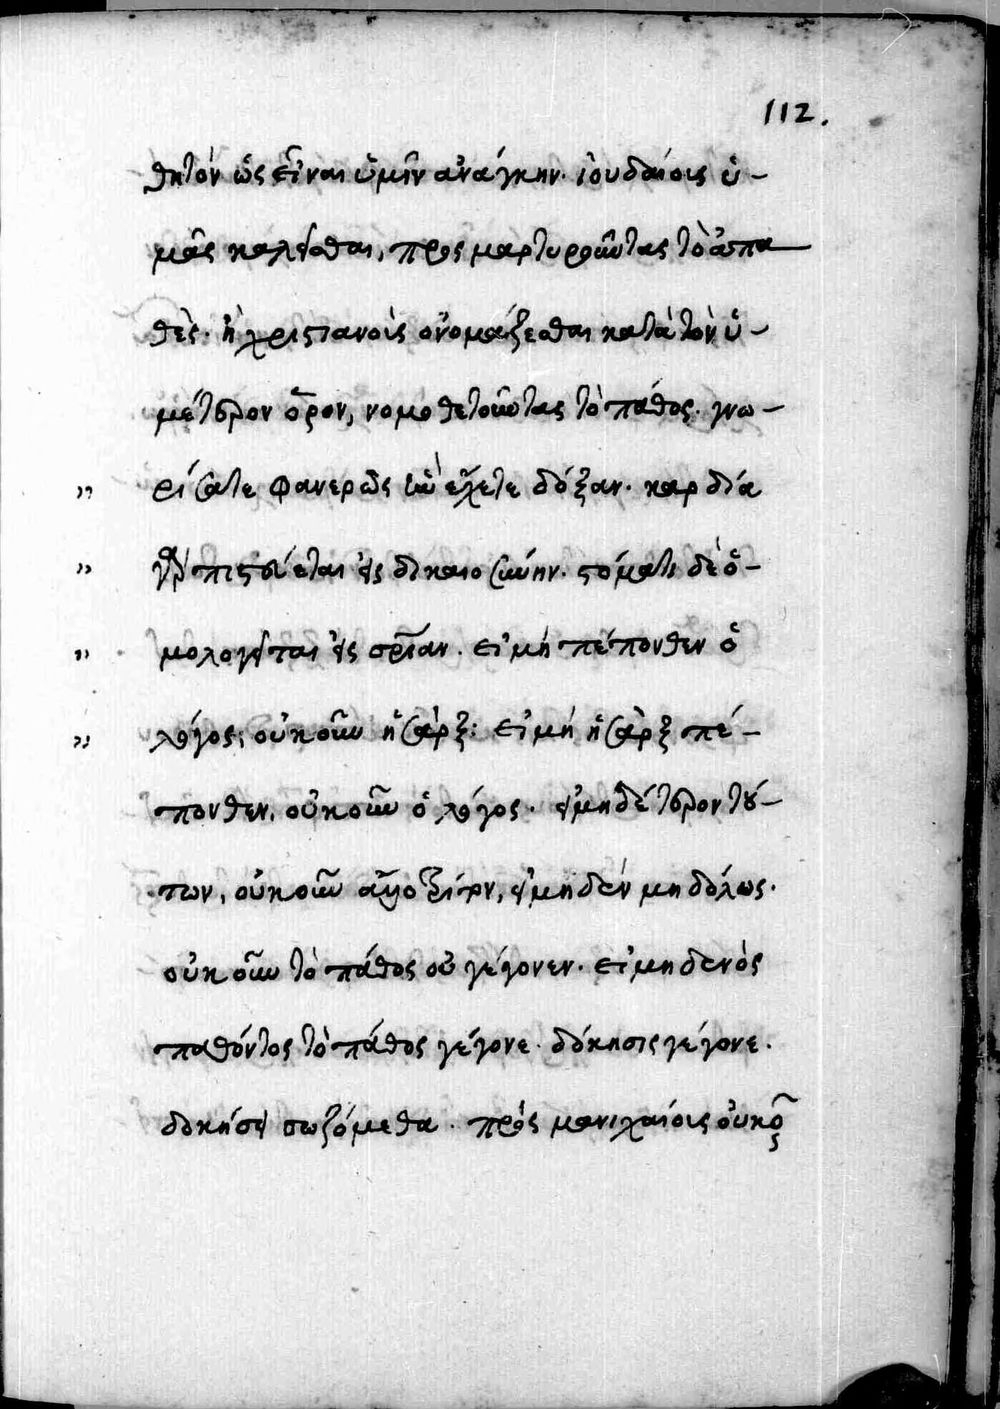 112.
θητὸν ὡς εἶναι ὑμῖν ἀνάγκην. ἰουδαίοις ὑ-
μᾶς καλεῖσθαι, προς μαρτυροῦντας τὸ ἀπα
θὲς. ἢ χριστιανοὶς ὀνομάζεσθαι κατὰ τὸν ὑ-
μέτερον ὅρον, νομοθετοῦντας τὸ πάθος. γνω-
ρίσατε φανερῶς ἣν εἴχετε δόξαν. καρδία
γὰρ πιστεύεται εἰς δικαιοσύνην. στόματι δὲ ὁ-
μολογεῖται εἰς σρίαν. εἰ μή πέπονθεν ὁ
λόγος, οὐκοῦν ἡ σάρξ: εἰ μή ἡ σὰρξ πέ-
πονθεν, οὐκοῦν ὁ λόγος. εἰ μηδέτερον τού-
των, οὐκοῦν ἀμφότερον, εἰ μηδὲν μηδόλως.
οὐκοῦν τὸ πάθος οὐ γέγονεν. εἰ μηδενὸς
παθόντος τὸ πάθος γέγονε. δόκησις γέγονε.
δοκήσει σωζόμεθα. πρὸς μανιχαίοις οὐκο